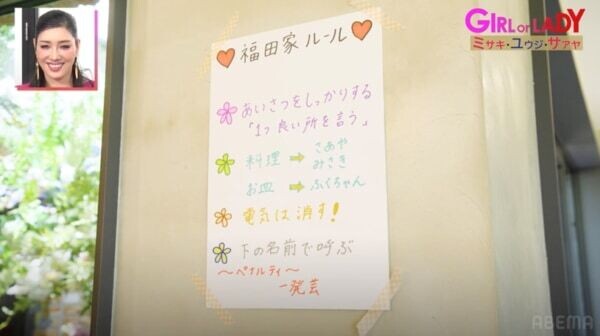 GIRL or LADY
ミサキ・ユウジ・サアヤ
福田家ルール
あいさつをしっかりする
「1つ良い所を言う」
料理 → さあや
みさき
お皿 → ふくちゃん
電気は消す！
下の名前で呼ぶ
〜ペナルティ〜
一発芸
ABEMA